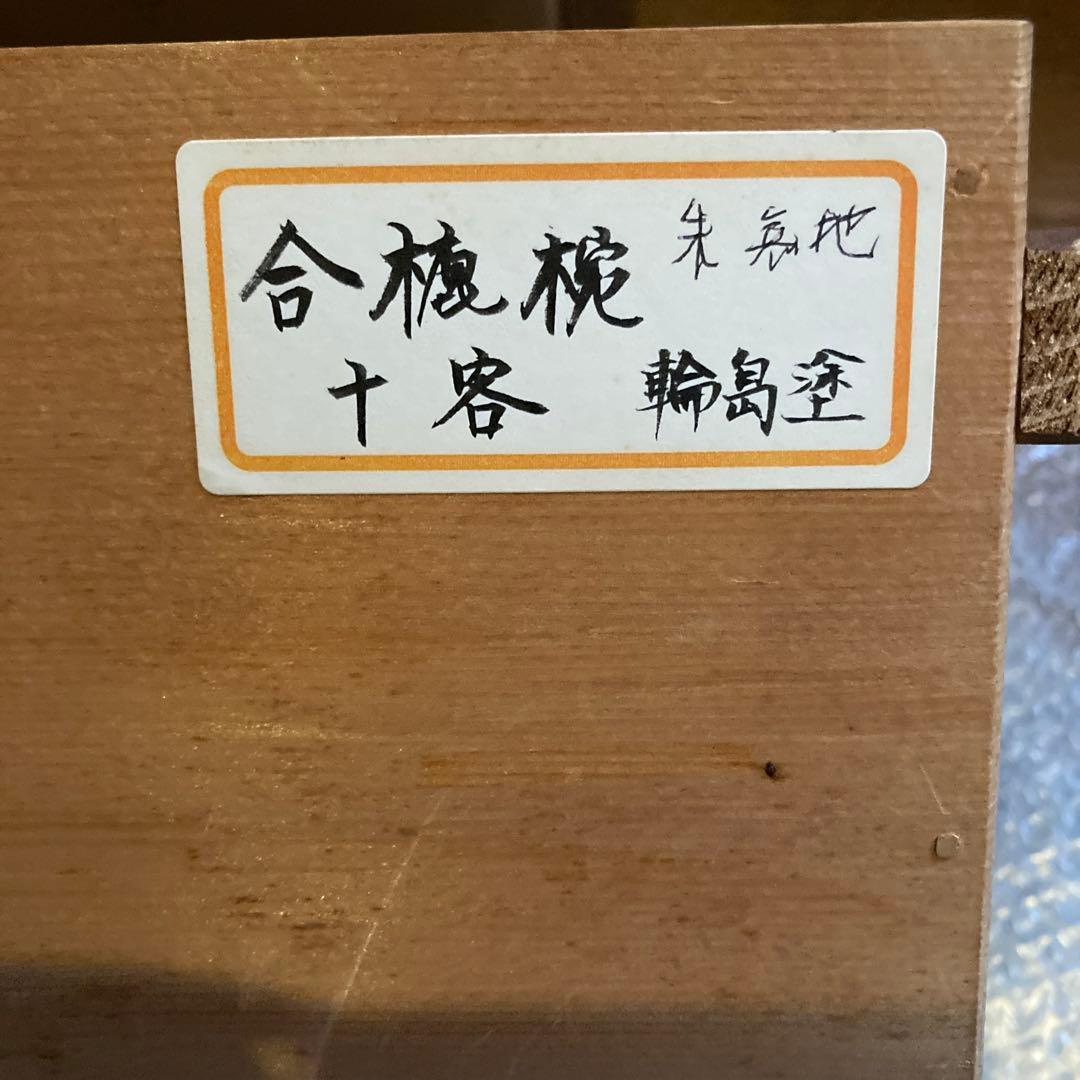 合樚椀 朱 地
十客 輪島塗